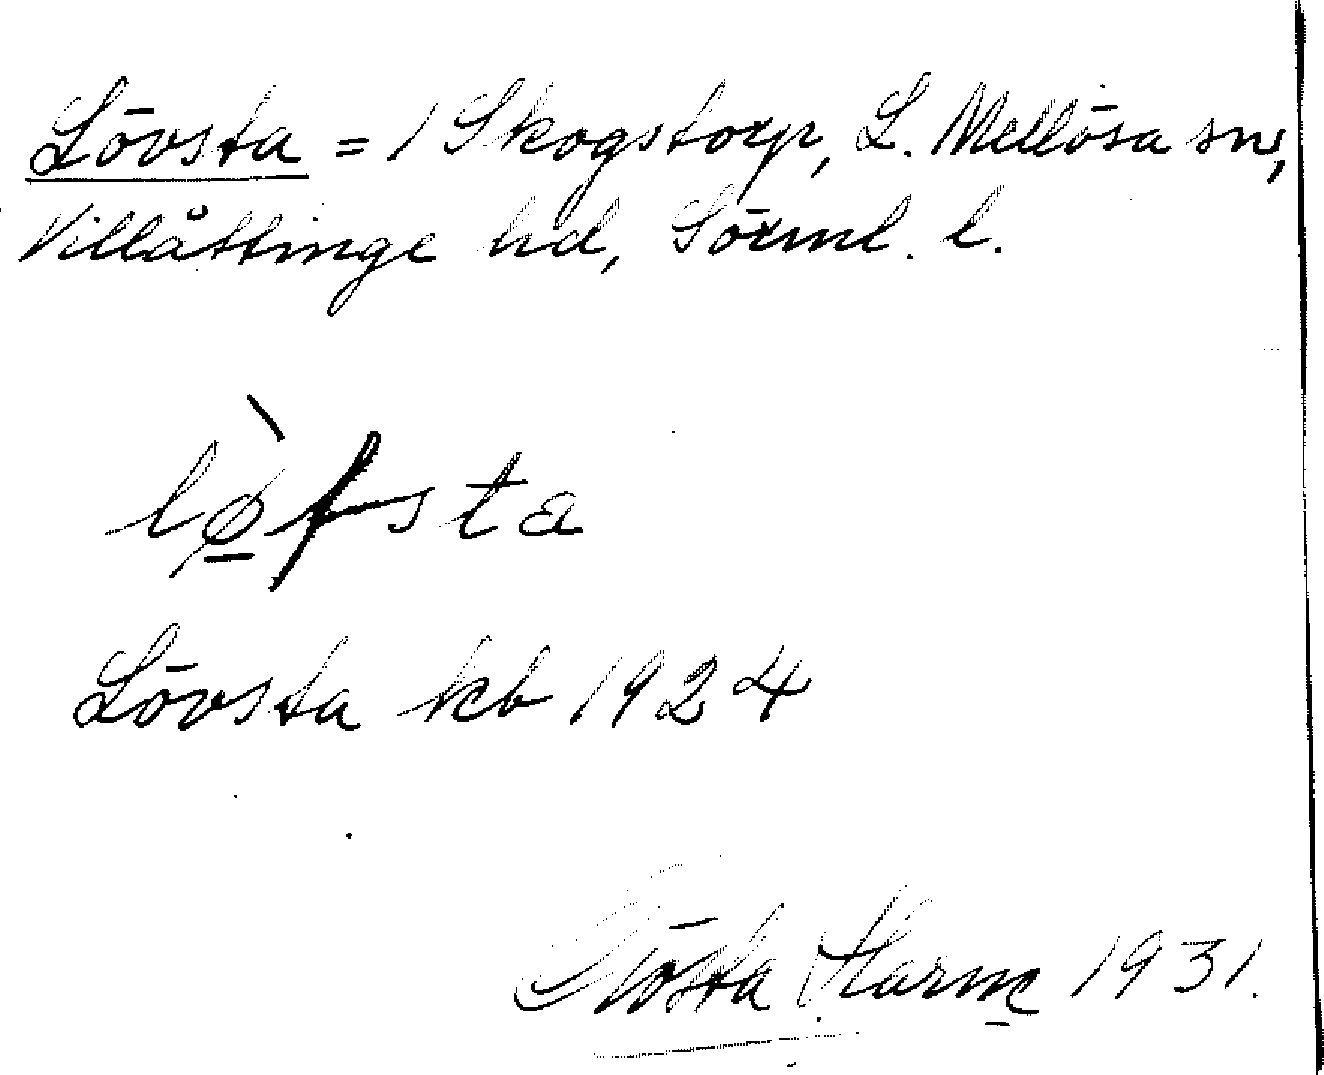 Lövsta = 1 Skogstorp, L. Mellösa sn,
Villåttinge hd, Sörml. l.
lø̲̀fsta
Lövsta kb 1924
Gösta Harm̲ 1931.